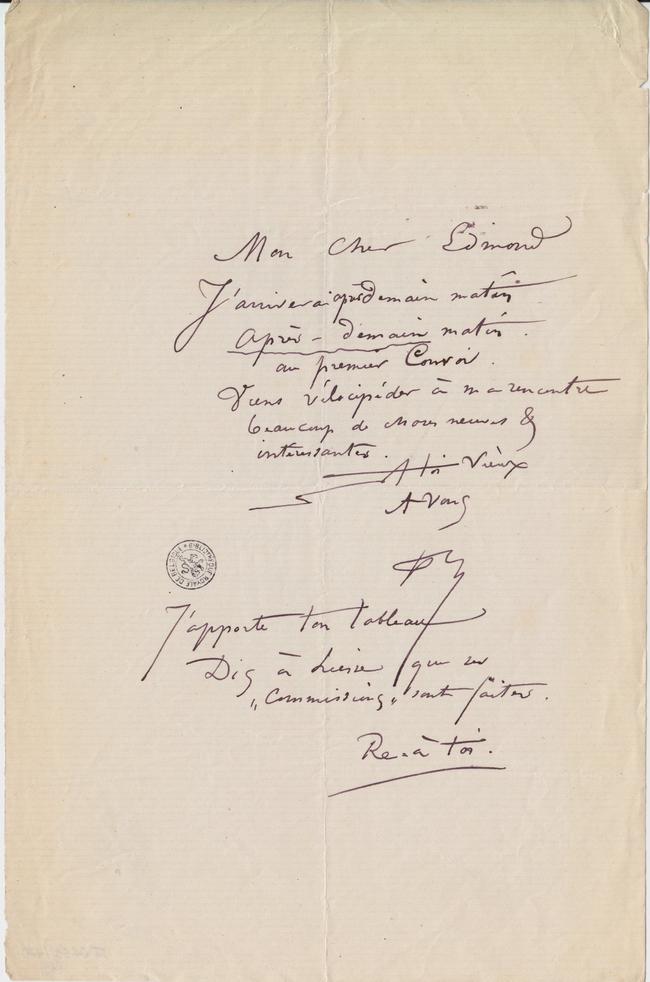 Mon Cher Edmond
J'arriverai après demain matin
après-demain matin.
au premier Convoi.
Viens vélocipéder à ma rencontre
beaucoup de choses neuves &
intéressantes.
A toi Vieux
A Vous
BIBLIOTHÈQUE ROYALE DE BELGIQUE
J'apporte ton tableau
Dis à que ses
„Commissions„ sont faites.
Re-à toi.